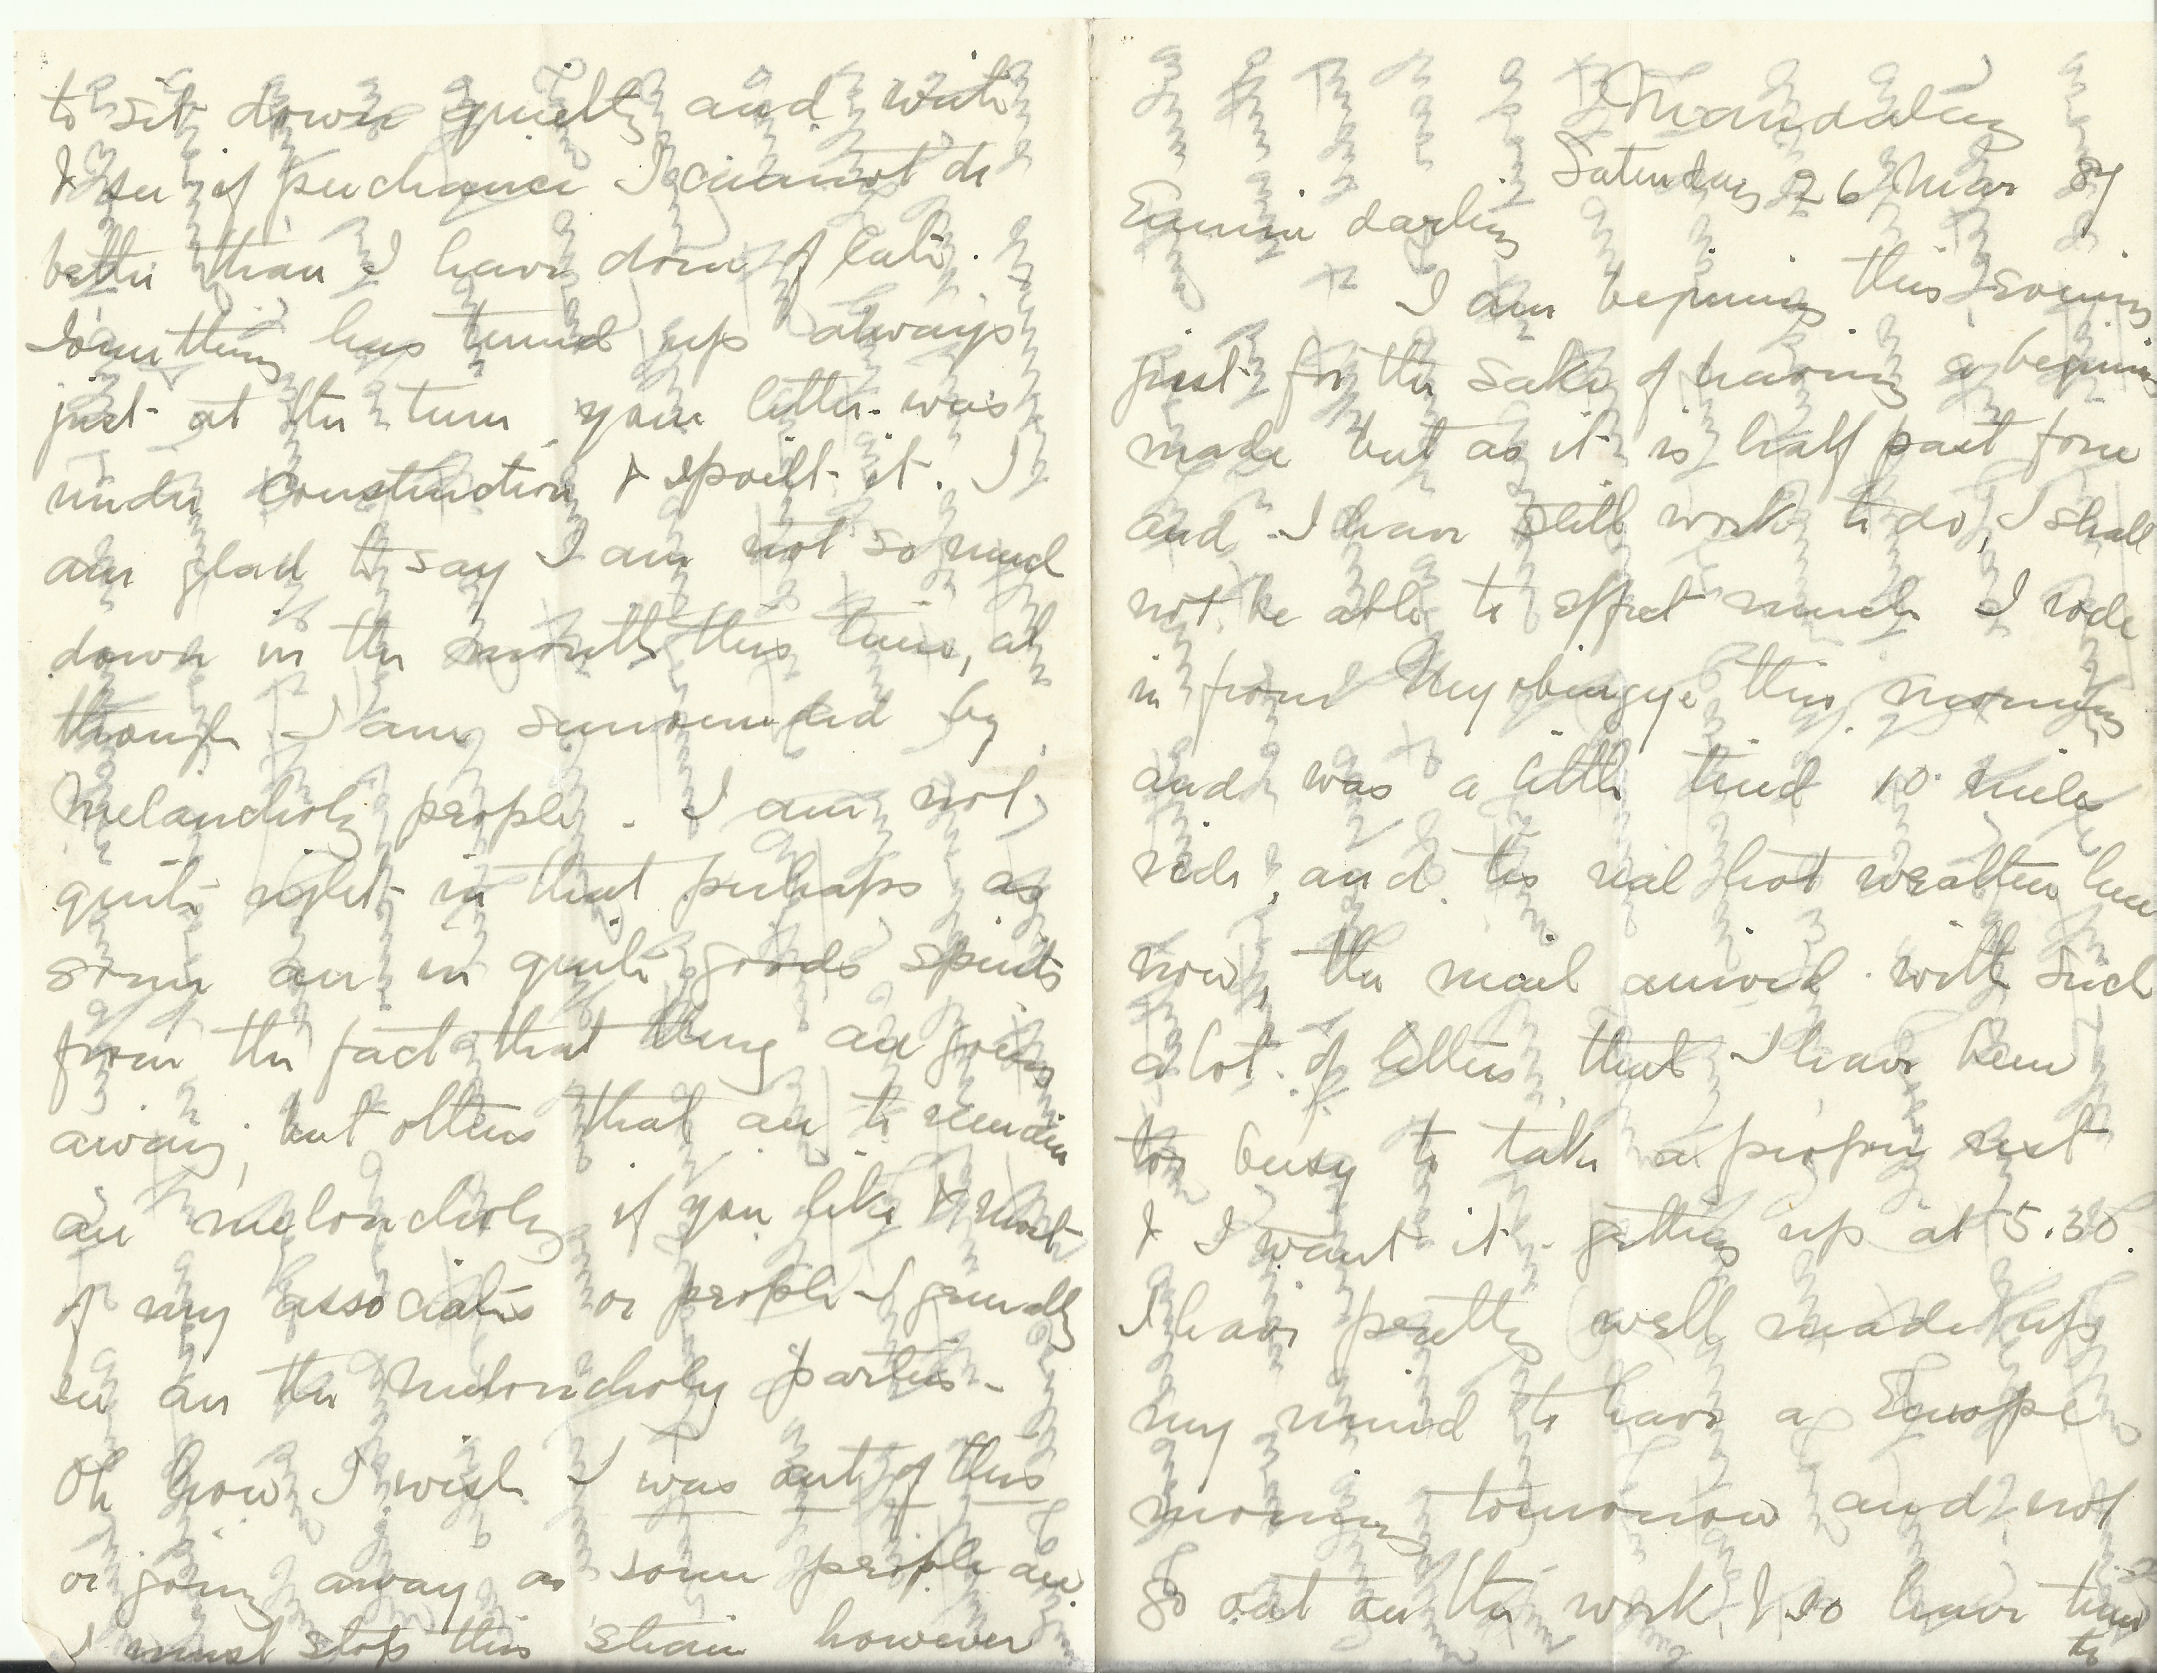 Mandalay
Saturday 26 Mar 87
Emmie darling
I am begining this evening
just for the sake of having a begining
made but as it is half past four
and I have still work to do, I shall
not be able to effect much I rode
in from Myobingye this morning
and was a little tired 10 miles
ride, and its real hot weather here
now, the mail arrived with such
a lot of letters that I have been
too busy to take a proper rest
& I want it getting up at 5.30.
I have pretty well made up
my mind to have a Europe
morning tomorrow and not
go out on the work & so have time
to
to sit down quietly and write
& see if perchance I cannot do
better than I have done of late.
Something has turned up always
just at the time your letter was
under construction & spoilt it. I
am glad to say I am not so much
down in the mouth this time, al
though I am surrounded by
melancholy people. I am not
quite right in that perhaps as
some are in quite good spirits
from the fact that they are going
away, but others that are to remain
are meloncholy if you like & most
of my associates or people I generally
see are the meloncholy parties -
Oh how I wish I was out of this
or going away as some people are
I must stop this strain however